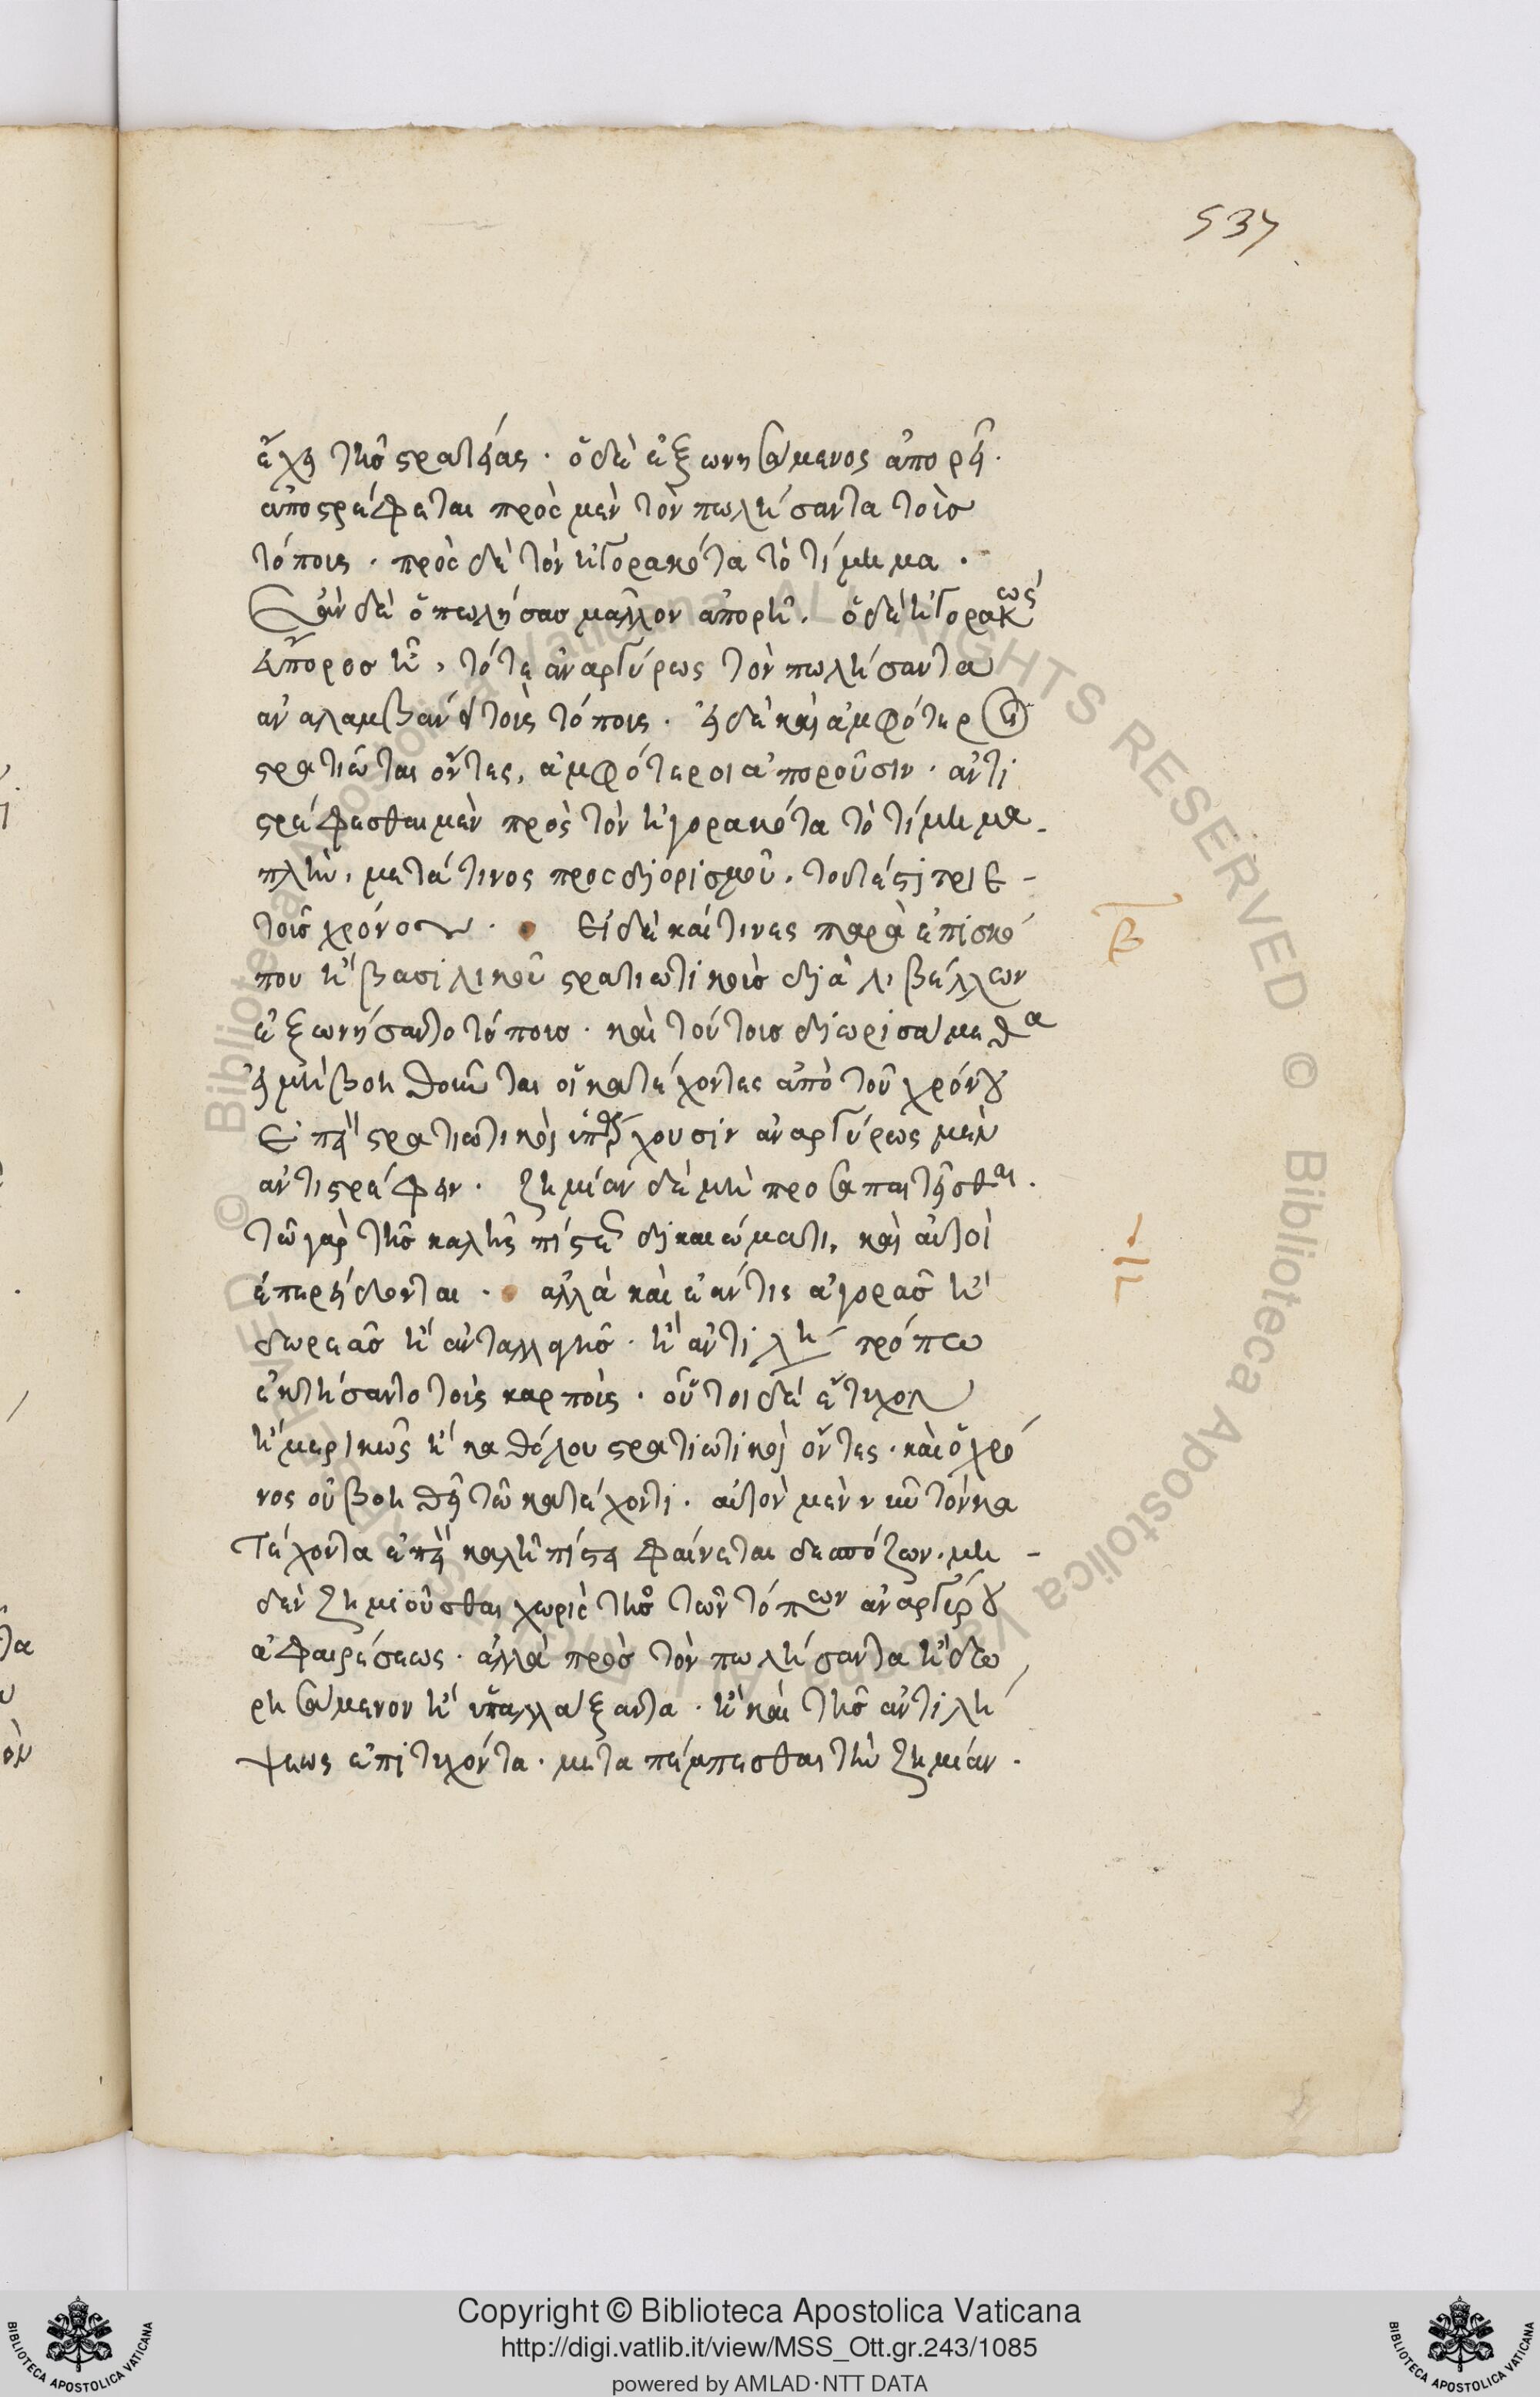 537
ἔχει τῆς στρατείας · ὁ δὲ ἐξωνησάμενος ἀπορεῖ ·
ἀποστρέφεται πρὸς μὲν τὸν πωλήσαντα τοὺς
τόπους · πρὸς δὲ τὸν ἠγορακότα τὸ τίμημα ·
ἐὰν δὲ ὁ πωλήσας μᾶλλον ἀπορῆ, ὁ δὲ ἠγορακώς
εὔπορος ἦ, τότε ἀναργύρως τὸν πωλήσαντα
ἀναλαμβάνειν τοὺς τόπους · εἰ δὲ καὶ ἀμφότεροι
στρατιῶται ὄντες, ἀμφότεροι ἀποροῦσιν · ἀντι
στρέφεσθαι μὲν πρὸς τὸν ἠγορακότα τὸ τίμημα.
πλὴν, μετά τινος προσδιορισμοῦ, τουτέστι τριε -
τοῦς χρόνου · Εἰ δὲ καί τινες παρὰ ἐπισκό
που ἢ βασιλικοῦ στρατιωτικοὺς διὰ λιβέλλων
ἐξωνήσαντο τόπους · καὶ τούτοις διωρισάμεθα
εἰ μὴ βοηθοῦνται οἱ κατέχοντες ἀπὸ τοῦ χρόνου
ἐπεὶ στρατιωτικοὶ ὑπάρχουσιν ἀναργύρως μὲν
ἀντιστρέφειν · ζημίαν δὲ μὴ προσαπαιτεῖσθαι ·
τῶ γὰρ τῆς καλῆς πίστεως δικαιώματι, καὶ αὐτοὶ
ἐπερείδονται · ἀλλὰ καὶ ἐάν τις ἀγορᾶς ἢ
δωρεᾶς ἢ ἀνταλλαγῆς · ἢ ἀντιλη τρόπω
ἐκτήσαντο τοὺς καρποὺς · οὗτοι δὲ ἔτυχον
ἢ μερικῶς ἢ καθόλου στρατιωτικοὶ ὄντες · καὶ ὁ χρό
νος οὐ βοηθεῖ τῶ κατέχοντι · αὐτὸν μὲν νῦν τὸν κα
τέχοντα ἐπεὶ καλῆ πίστει φαίνεται δεσπόζων, μη -
δὲν ζημιοῦσθαι χωρὶς τῆς τῶν τόπων ἀναργύρου
ἀφαιρέσεως · ἀλλὰ πρὸς τὸν πωλήσαντα ἢ δω
ρησάμενον ἢ ὑπαλλάξαντα · ἢ καὶ τῆς ἀντιλή
ψεως ἐπιτυχόντα · μεταπέμπεσθαι τὴν ζημίαν ·
β
Copyright © Biblioteca Apostolica Vaticana
http://digi.vatlib.it/view/MSS_Ott.gr.243/1085
powered by AMLAD·NTT DATA
BIBLIOTECA APOSTOLICA VATICANA
BIBLIOTECA APOSTOLICA VATICANA